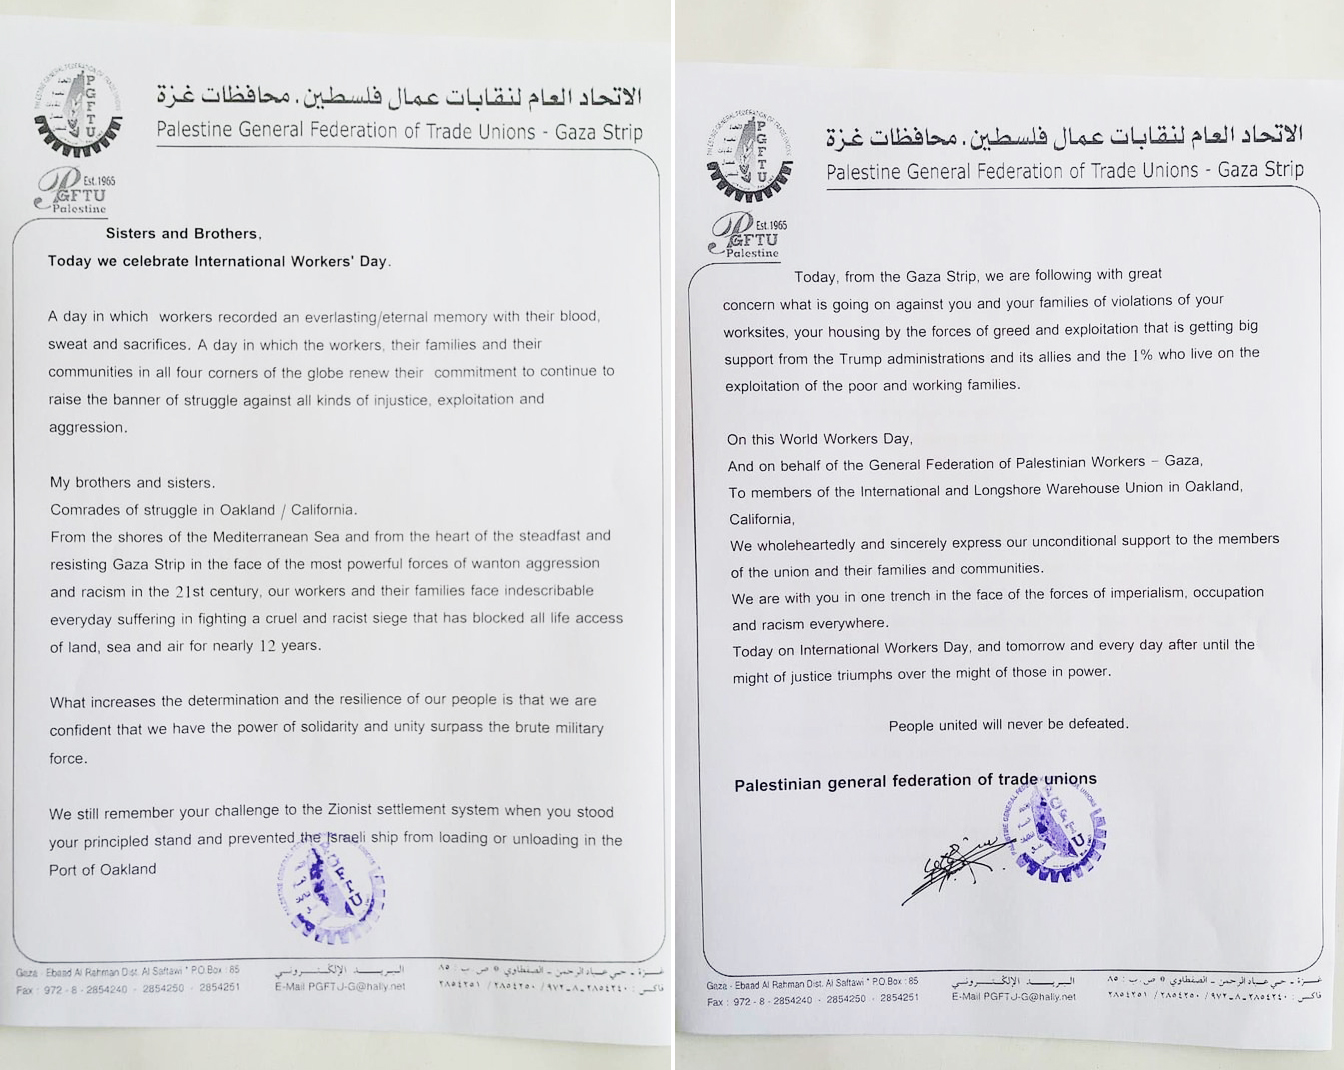 الاتحاد العام لنقابات عمال فلسطين . محافظات غزة
Palestine General Federation of Trade Unions - Gaza Strip
PGFTU
Est.1965
PGFTU
Palestine
Sisters and Brothers,
Today we celebrate International Workers' Day.
A day in which workers recorded an everlasting/eternal memory with their blood,
sweat and sacrifices. A day in which the workers, their families and their
communities in all four corners of the globe renew their commitment to continue to
raise the banner of struggle against all kinds of injustice, exploitation and
aggression.
My brothers and sisters.
Comrades of struggle in Oakland / California.
From the shores of the Mediterranean Sea and from the heart of the steadfast and
resisting Gaza Strip in the face of the most powerful forces of wanton aggression
and racism in the 21st century, our workers and their families face indescribable
everyday suffering in fighting a cruel and racist siege that has blocked all life access
of land, sea and air for nearly 12 years.
What increases the determination and the resilience of our people is that we are
confident that we have the power of solidarity and unity surpass the brute military
force.
We still remember your challenge to the Zionist settlement system when you stood
your principled stand and prevented the Israeli ship from loading or unloading in the
Port of Oakland
PGFTU
Gaza - Ebaad Al Rahman Dist. Al Saftawi * P.O.Box : 85
Fax : 972 - 8 - 2854240 - 2854250 - 2854251
البريــد الإلكتــرونــي
E-Mail PGFTJ-G@hally.net
غـزة - حـي عبـاد الرحمـن - الصفطاوي * ص . ب : ٨٥
فاكس : ٢٨٥٤٢٤٠ـ٨ـ٩٧٢ / ٢٨٥٤٢٥٠ / ٢٨٥٤٢٥١
الاتحاد العام لنقابات عمال فلسطين . محافظات غزة
Palestine General Federation of Trade Unions - Gaza Strip
PGFTU
Est.1965
PGFTU
Palestine
Today, from the Gaza Strip, we are following with great
concern what is going on against you and your families of violations of your
worksites, your housing by the forces of greed and exploitation that is getting big
support from the Trump administrations and its allies and the 1% who live on the
exploitation of the poor and working families.
On this World Workers Day,
And on behalf of the General Federation of Palestinian Workers – Gaza,
To members of the International and Longshore Warehouse Union in Oakland,
California,
We wholeheartedly and sincerely express our unconditional support to the members
of the union and their families and communities.
We are with you in one trench in the face of the forces of imperialism, occupation
and racism everywhere.
Today on International Workers Day, and tomorrow and every day after until the
might of justice triumphs over the might of those in power.
People united will never be defeated.
Palestinian general federation of trade unions
PGFTU
Gaza - Ebaad Al Rahman Dist. Al Saftawi * P.O.Box : 85
Fax : 972 - 8 - 2854240 - 2854250 - 2854251
البريــد الإلكتــرونــي
E-Mail PGFTJ-G@hally.net
غـزة - حـي عبـاد الرحمـن - الصفطاوي * ص . ب : ٨٥
فاكس : ٢٨٥٤٢٤٠ـ٨ـ٩٧٢ / ٢٨٥٤٢٥٠ / ٢٨٥٤٢٥١